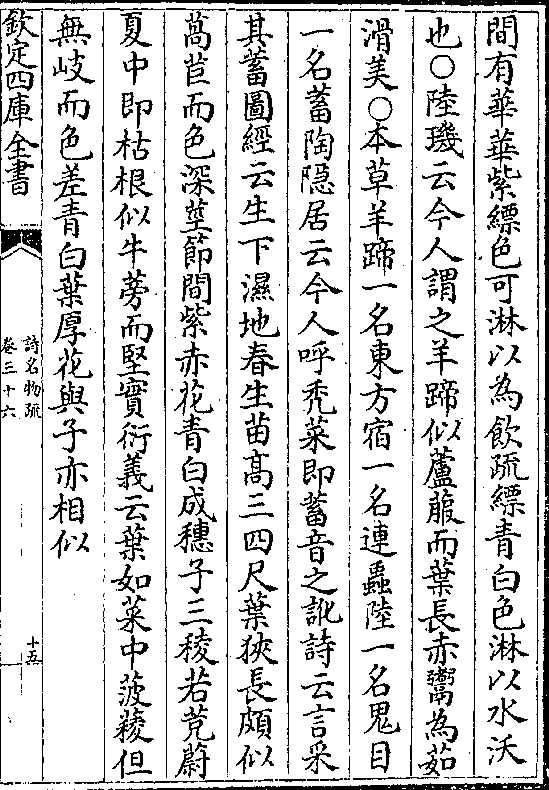 間有華華紫縹色可淋以為飲疏縹青白色淋以水沃
也○陸璣云今人謂之羊蹄似蘆菔而葉長赤鬻為茹
滑美○本草羊蹄一名東方宿一名連蟲陸一名鬼目
一名蓄陶隠居云今人呼秃菜即蓄音之訛詩云言采
其蓄圖經云生下濕地春生苗高三四尺葉狹長頗似
萵苣而色深莖節間紫赤花青白成穗子三稜若茺蔚
夏中即枯根似牛蒡而堅實衍義云葉如菜中菠薐但
無岐而色差青白葉厚花與子亦相似
欽定四庫全書
詩名物疏
卷三十六
十五